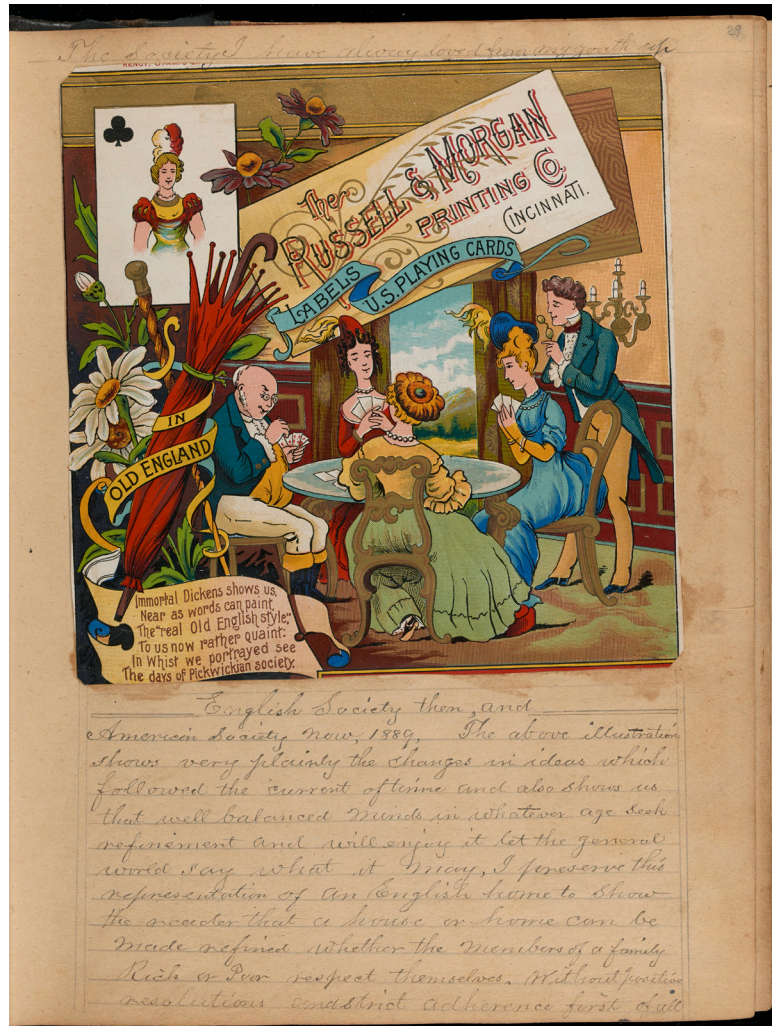 29
The Society I have always loved from my youth up
The
RUSSELL & MORGAN
PRINTING CO.
CINCINNATI.
LABELS
U.S. PLAYING CARDS
IN
OLD ENGLAND
Immortal Dickens shows us,
Near as words can paint,
The "real Old English style,"
To us now rather quaint:
In Whist we portrayed see
The days of Pickwickian society.
English Society then, and
American Society Now, 1889. The above illustration
shows very plainly the changes in ideas which
followed the current of time and also shows us
that well balanced minds in whatever age seek
refinement and will enjoy it let the general
world say what it may, I preserve this
representation of an English home to show
the reader that a house or home can be
made refined whether the members of a family
Rich or Poor respect themselves. Without positive
resolutions and strict adherence first of all